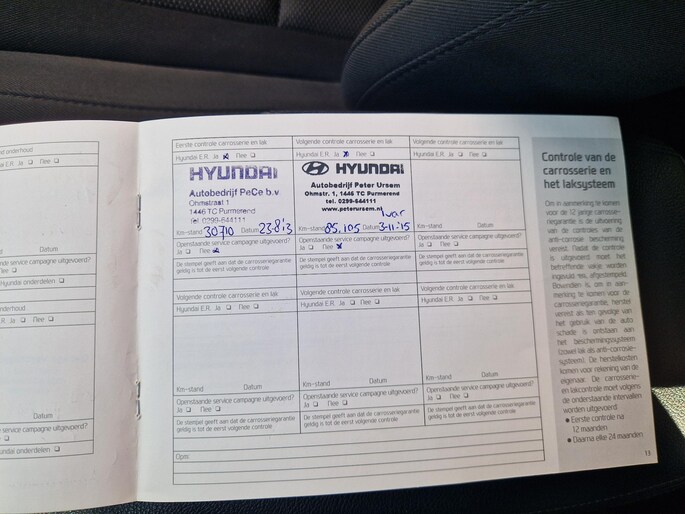 d onderhoud
R. Ja ❑ Nee ❑
Datum
service campagne uitgevoerd?
Hyundai onderdelen ❑
onderhoud
Ja ❑ Nee ❑
Datum
service campagne uitgevoerd?
Hyundai onderdelen ❑
Eerste controle carrosserie en lak
Hyundai E.R. Ja ☒ Nee ❑
HYUNDAI
Autobedrijf PeCe b.v
Ohmstraat 1
1446 TC Purmerend
tel 0299-644111
Km-stand 30710 Datum 23-8-'13
Openstaande service campagne uitgevoerd?
Ja ❑ Nee ☒
De stempel geeft aan dat de carrosseriegarantie
geldig is tot de eerst volgende controle
Volgende controle carrosserie en lak
Hyundai E.R. Ja ☒ Nee ❑
HYUNDAI
Autobedrijf Peter Ursem
Ohmstr. 1, 1446 TC Purmerend
tel. 0299-644111
www.peterursem.nl
Ivar
Km-stand 85.105 Datum 3-11-'15
Openstaande service campagne uitgevoerd?
Ja ❑ Nee ☒
De stempel geeft aan dat de carrosseriegarantie
geldig is tot de eerst volgende controle
Volgende controle carrosserie en lak
Hyundai E.R. Ja ❑ Nee ❑
Km-stand Datum
Openstaande service campagne uitgevoerd?
Ja ❑ Nee ❑
De stempel geeft aan dat de carrosseriegarantie
geldig is tot de eerst volgende controle
Volgende controle carrosserie en lak
Hyundai E.R. Ja ❑ Nee ❑
Km-stand Datum
Openstaande service campagne uitgevoerd?
Ja ❑ Nee ❑
De stempel geeft aan dat de carrosseriegarantie
geldig is tot de eerst volgende controle
Volgende controle carrosserie en lak
Hyundai E.R. Ja ❑ Nee ❑
Km-stand Datum
Openstaande service campagne uitgevoerd?
Ja ❑ Nee ❑
De stempel geeft aan dat de carrosseriegarantie
geldig is tot de eerst volgende controle
Volgende controle carrosserie en lak
Hyundai E.R. Ja ❑ Nee ❑
Km-stand Datum
Openstaande service campagne uitgevoerd?
Ja ❑ Nee ❑
De stempel geeft aan dat de carrosseriegarantie
geldig is tot de eerst volgende controle
Opm:
Controle van de
carrosserie en
het laksysteem
Om in aanmerking te komen
voor de 12 jarige carrosse-
riegarantie is de uitvoering
van de controles van de
anti-corrosie bescherming
vereist. Nadat de controle
is uitgevoerd moet het
betreffende vakje worden
ingevuld en, afgestempeld.
Bovendien is, om in aan-
merking te komen voor de
carrosseriegarantie, herstel
vereist als ten gevolge van
het gebruik van de auto
schade is ontstaan aan
het beschermingssysteem
(zowel lak als anti-corrosie-
systeem). De herstelkosten
komen voor rekening van de
eigenaar. De carrosserie-
en lakcontrole moet volgens
de onderstaande intervallen
worden uitgevoerd:
● Eerste controle na
12 maanden
● Daarna elke 24 maanden
13